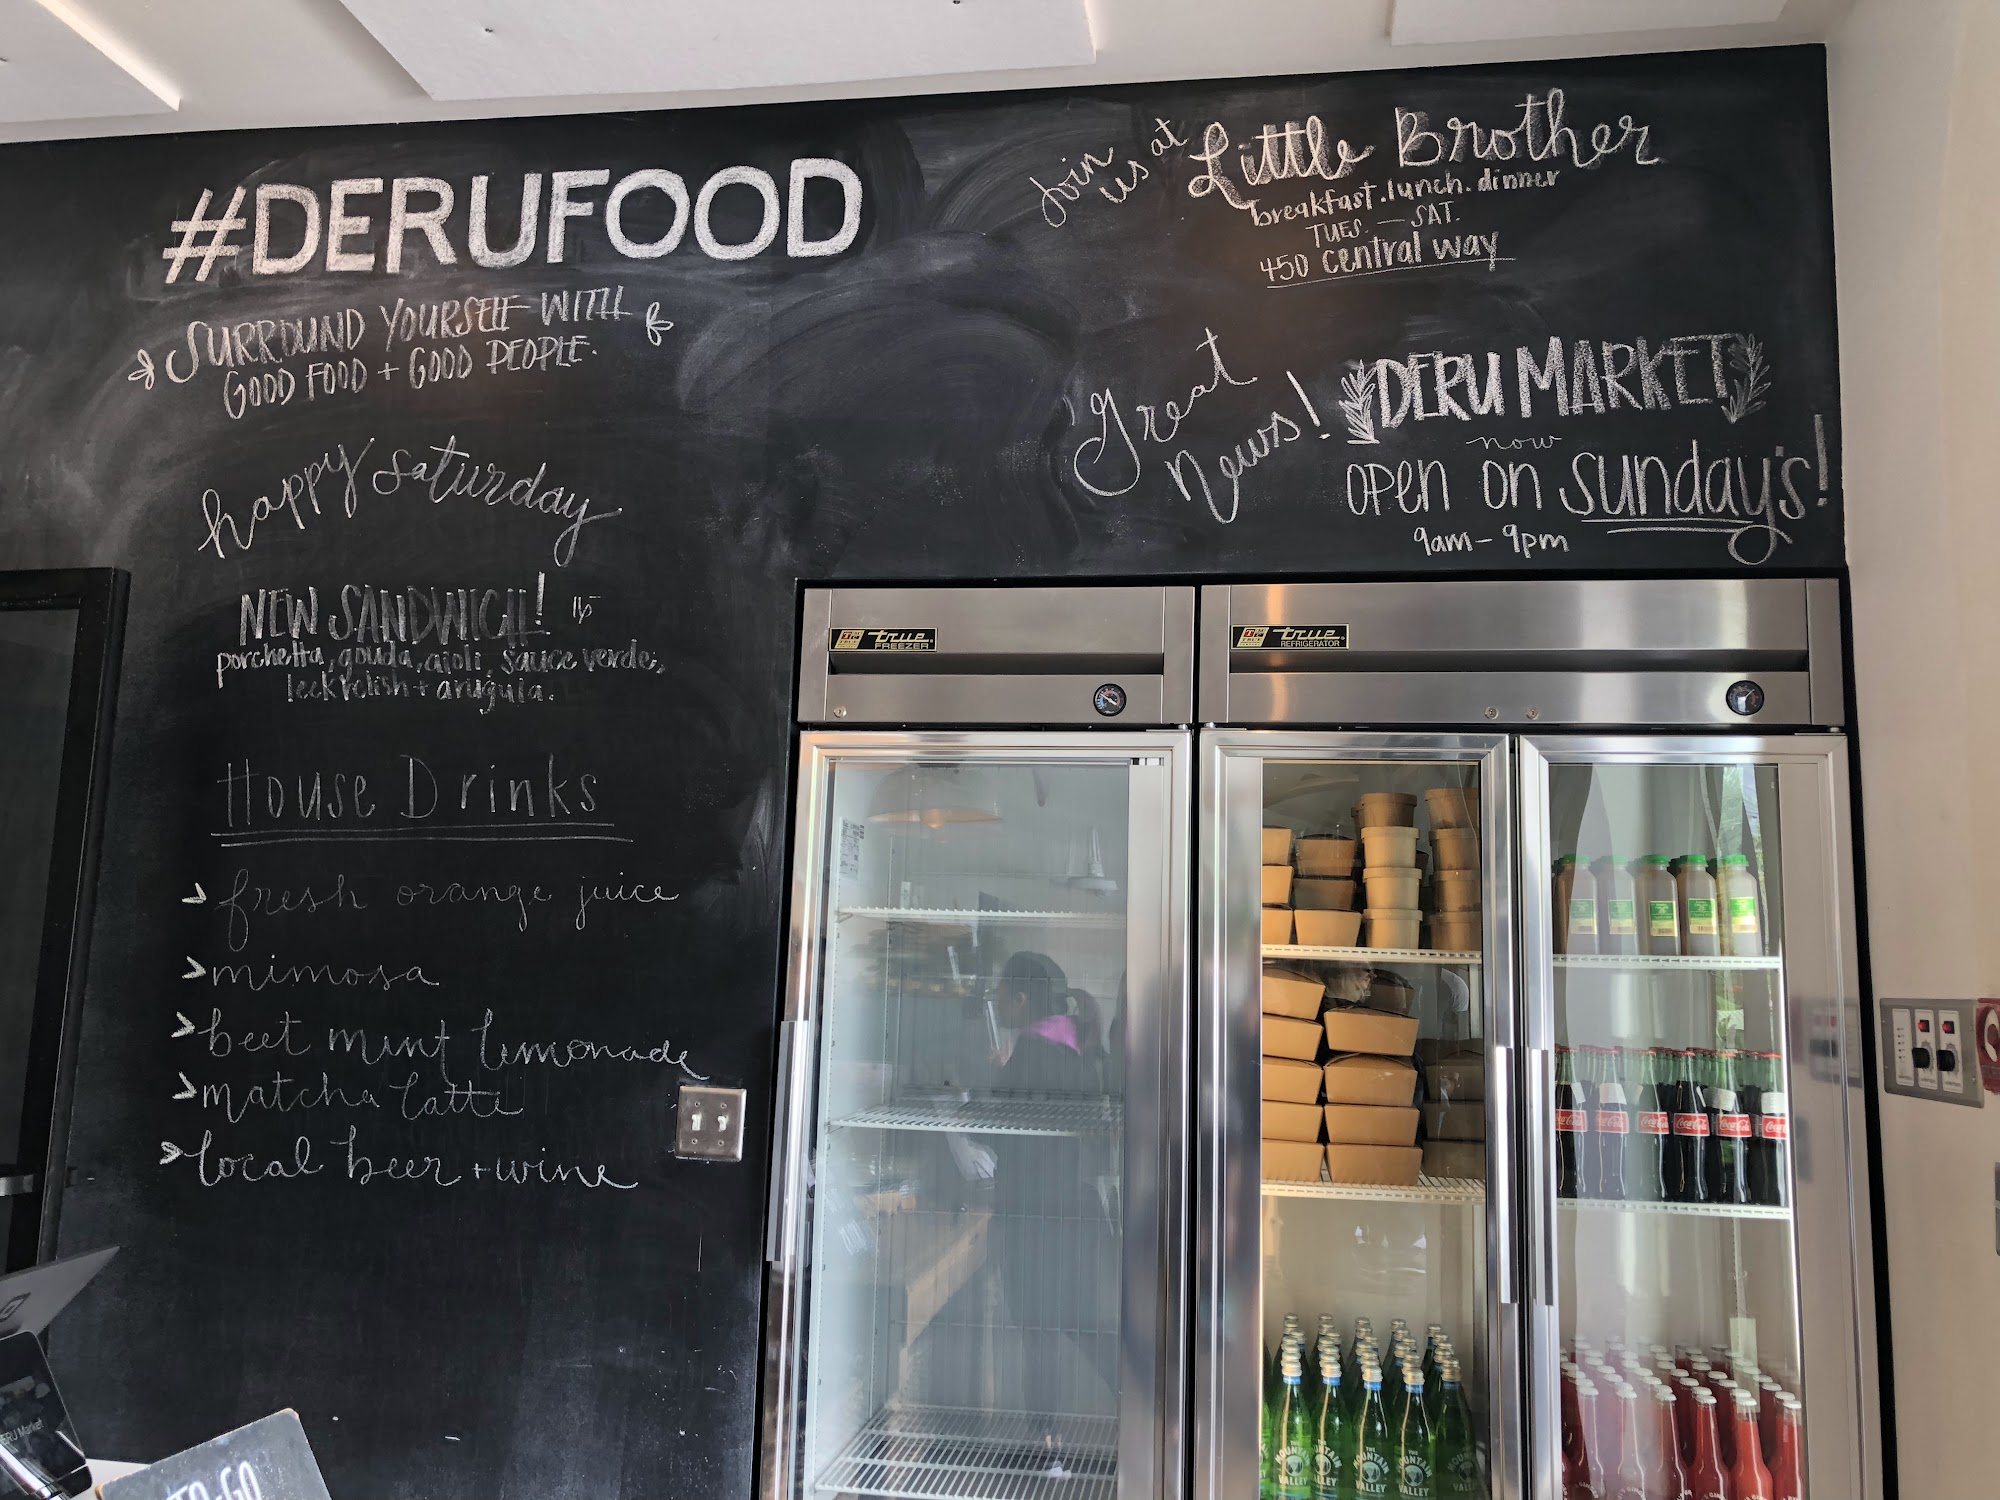 #DERUFOOD
SURROUND YOURSELF WITH
GOOD FOOD + GOOD PEOPLE.
happy saturday
NEW SANDWICH! 16
porchetta, gouda, aioli, sauce verde,
leek relish + arugula.
House Drinks
> fresh orange juice
> mimosa
> beet mint lemonade
> matcha latte
> local beer + wine
Join us at Little Brother
breakfast.lunch.dinner
TUES. — SAT.
450 central way
Great News!
DERU MARKET
now
open on sunday's!
9am - 9pm
true
FREEZER
true
REFRIGERATOR
Coca-Cola
Coca-Cola
Coca-Cola
Coca-Cola
THE MOUNTAIN VALLEY
THE MOUNTAIN VALLEY
THE MOUNTAIN VALLEY
THE MOUNTAIN VALLEY
TO-GO